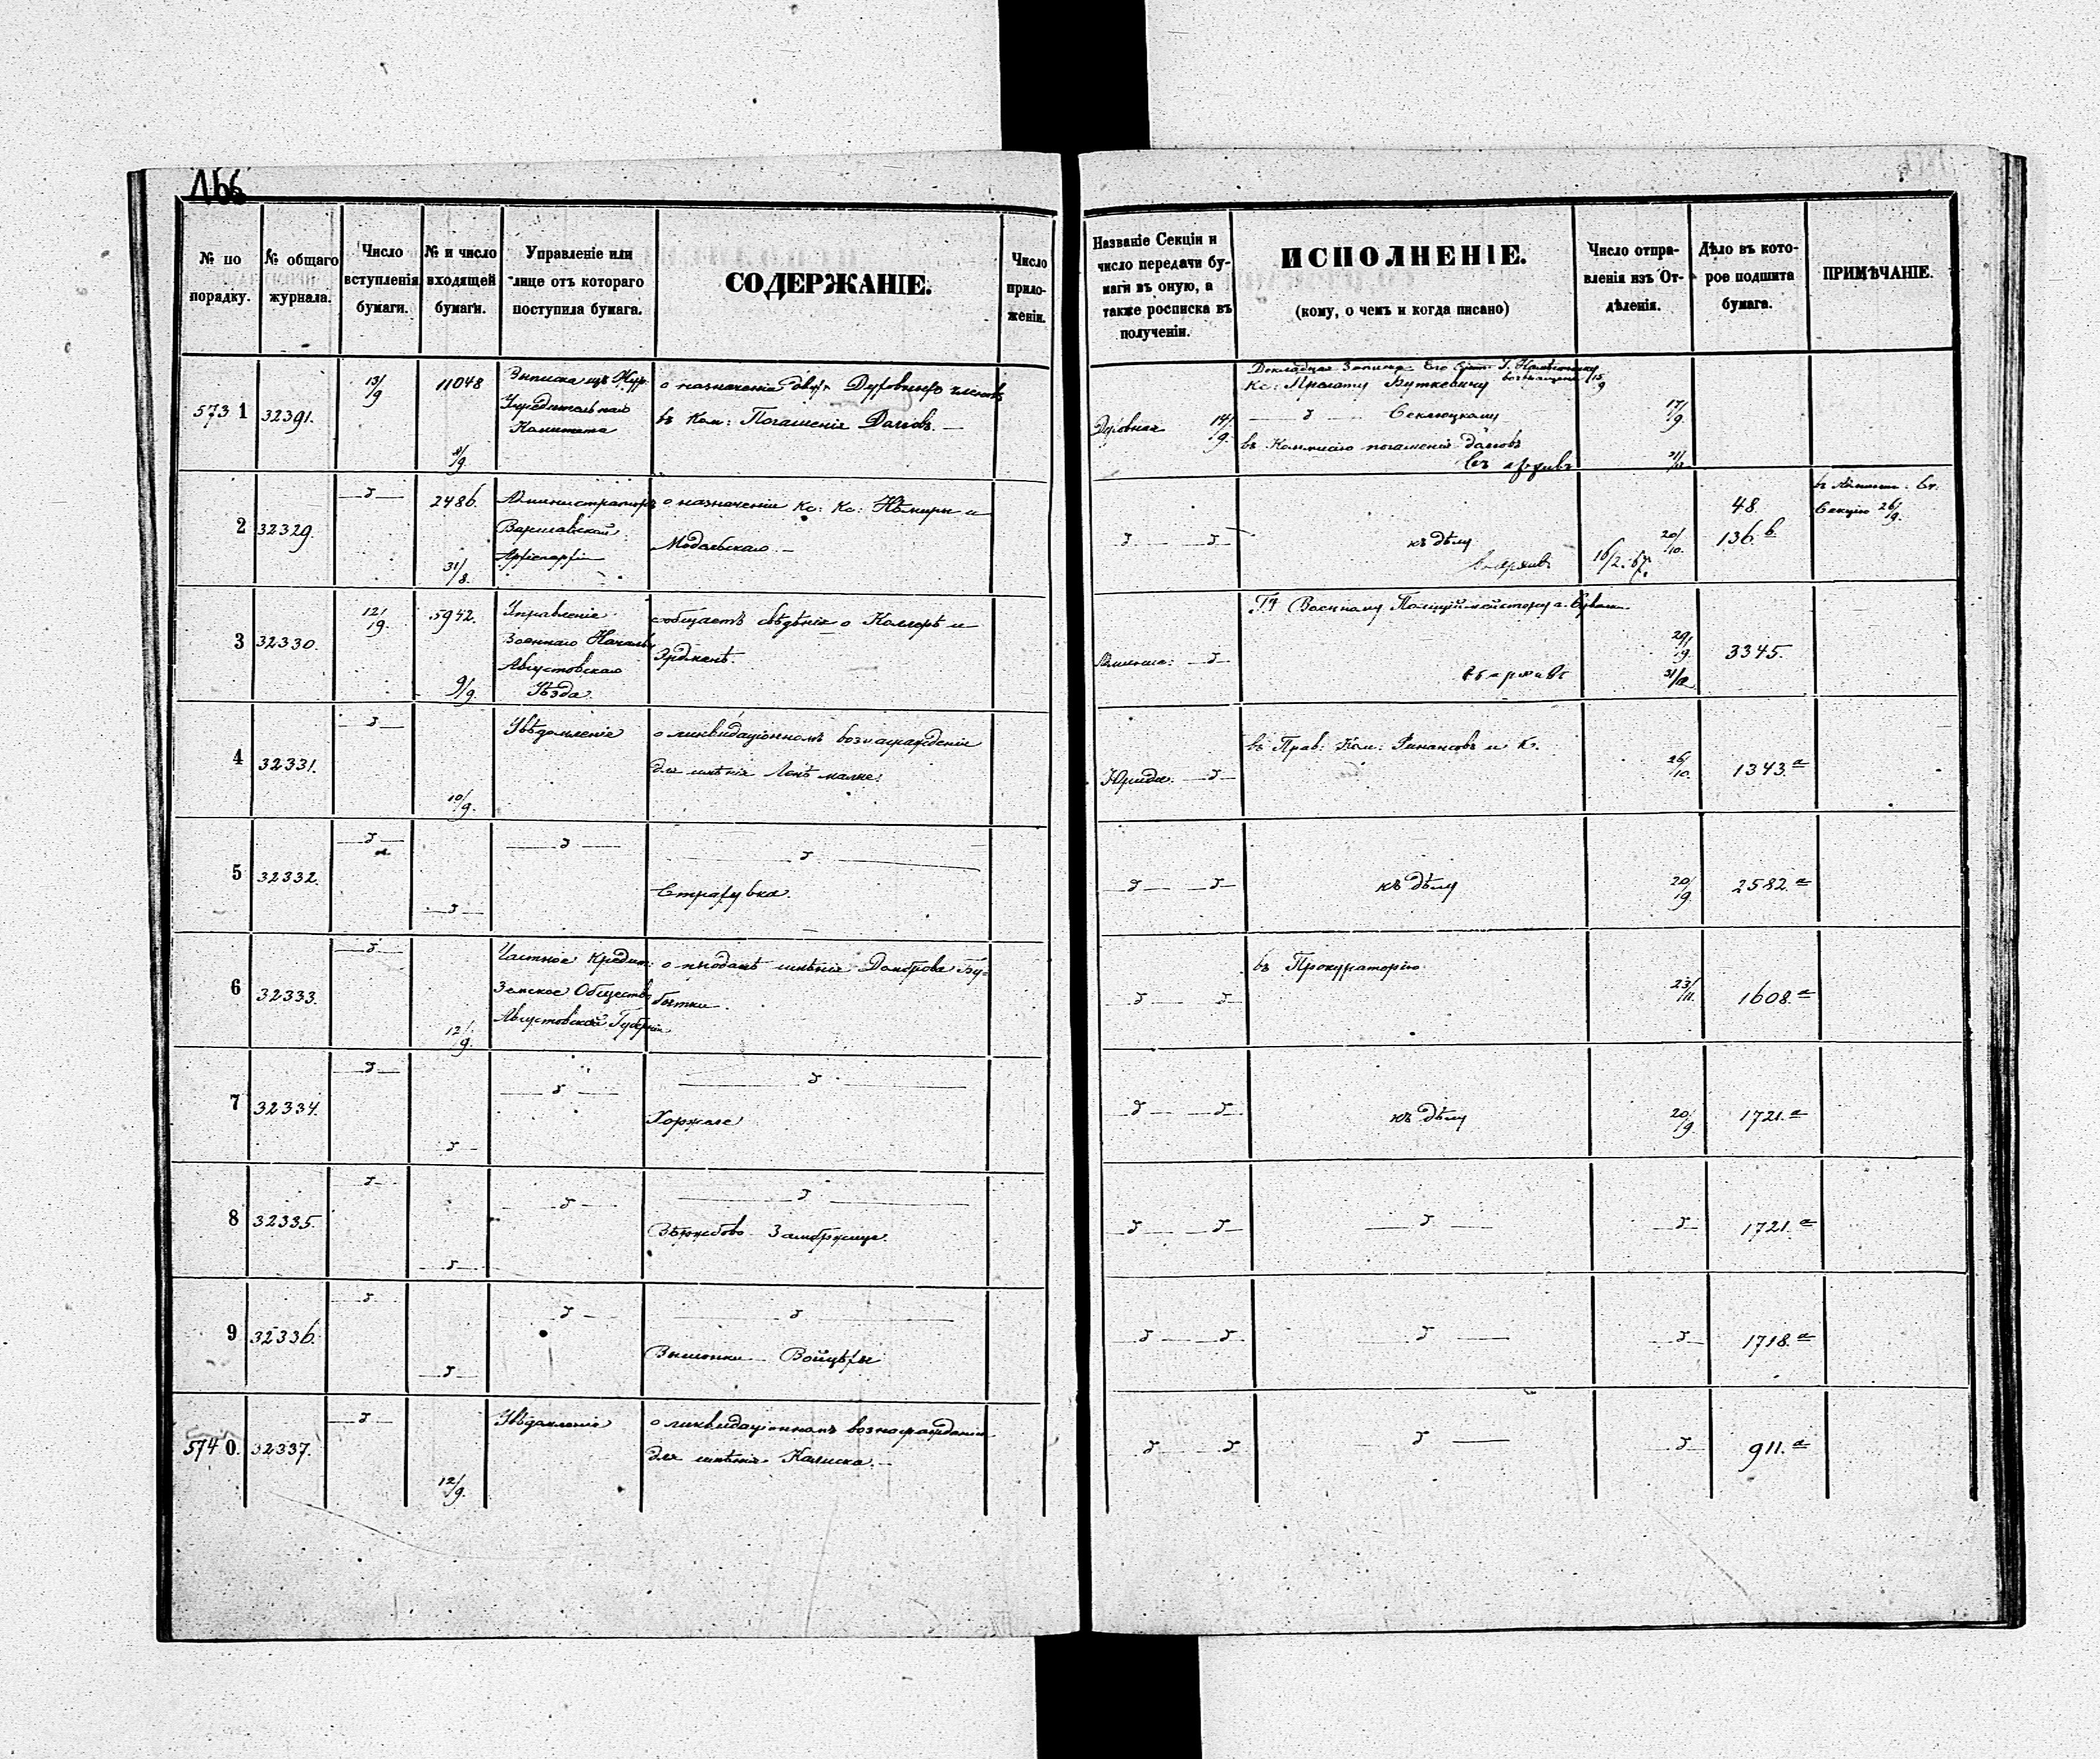 166
№ по порядку.
№ общаго журнала.
Число вступленія бумаги.
№ и число входящей бумаги.
Управленіе или лице отъ котораго поступила бумага.
СОДЕРЖАНІЕ.
Число прило-женій.
Названіе Секціи и число передачи бу-маги въ оную, а также росписка въ полученіи.
ИСПОЛНЕНІЕ.
(кому, о чемъ и когда писано)
Число отпра-вленія изъ От-дѣленія.
Дѣло въ кото-рое подшита бумага.
ПРИМѢЧАНІЕ.
573 1
32391.
13/9
11048
8/9.
Выписка изъ Жур.
Учредительнаго
Комитета
о назначеніи двухъ Духовныхъ членовъ
въ Ком: Погашенія Долговъ. —
Духовная 14/9.
Докладная Записка Его
Кс: Прелату Буткевичу
— „ — Секлюцкому
въ Коммисію погашенія долговъ
въ архивъ
17/9.
2
32329.
— „ —
2486.
31/8.
Администраторъ
Варшавской
Архіепархіи
о назначеніи Кс: Кс: Нѣмиры и
Модельскаго. —
— „ — „ —
къ дѣлу
въ архивъ
16/2. 67.
20/10.
48.
136.b
Секцію 26/9.
3
32330.
12/9.
5942.
9/9.
Управленіе
Военнаго Начальн
Августовскаго
Уѣзда.
сообщаетъ свѣдѣнія о Коллерѣ и
Эрдманѣ.
— „ —
Военному Полиціймейстеру г.
въ архивъ
29/9.
31/12
3345.
4
32331.
— „ —
10/9.
Увѣдомленіе
о ликвидаціонномъ вознагражденіи
для имѣнія
Юриди. — „ —
въ Прав: Ком: Финансовъ и К.
26/10.
1343.a
5
32332.
— „ —
— „ —
— „ —
— „ —
— „ — „ —
къ дѣлу
20/9.
2582.a
6
32333.
— „ —
12/9.
Частное Кредит:
Земское Общество
Августовской Губерніи
о продажѣ имѣнія Домброва Бу-
бытки.
— „ — „ —
въ Прокураторію
23/11.
1608.a
7
32334.
— „ —
„ —
— „ —
— „ —
Хоржеле
— „ — „ —
къ дѣлу
20/9.
1721.a
8
32335.
„ —
— „ —
— „ —
— „ —
Замбржице.
— „ — „ —
— „ —
— „ —
1721.a
9
32336.
— „ —
— „ —
— „ —
— „ —
Вышонки Войцѣхи
— „ — „ —
— „ —
— „ —
1718.a
574 0.
32337.
— „ —
12/9.
Увѣдомленіе
о ликвидаціонномъ вознагражденіи
для имѣнія Калиска. —
„ — „
„ —
— „ —
911.a